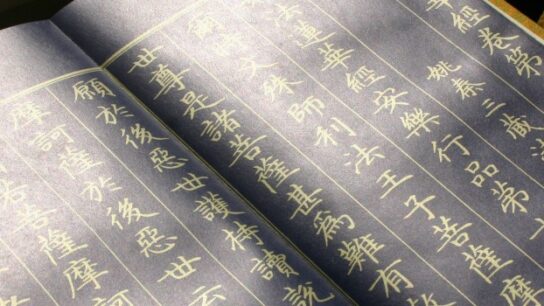 華經卷第
姚秦三藏法
法蓮華經安樂行品弟
爾時文殊師利法王子菩薩摩
世尊是諸菩薩甚為難有
願於後惡世護持讀說
摩訶薩於後惡世云
若菩薩摩訶